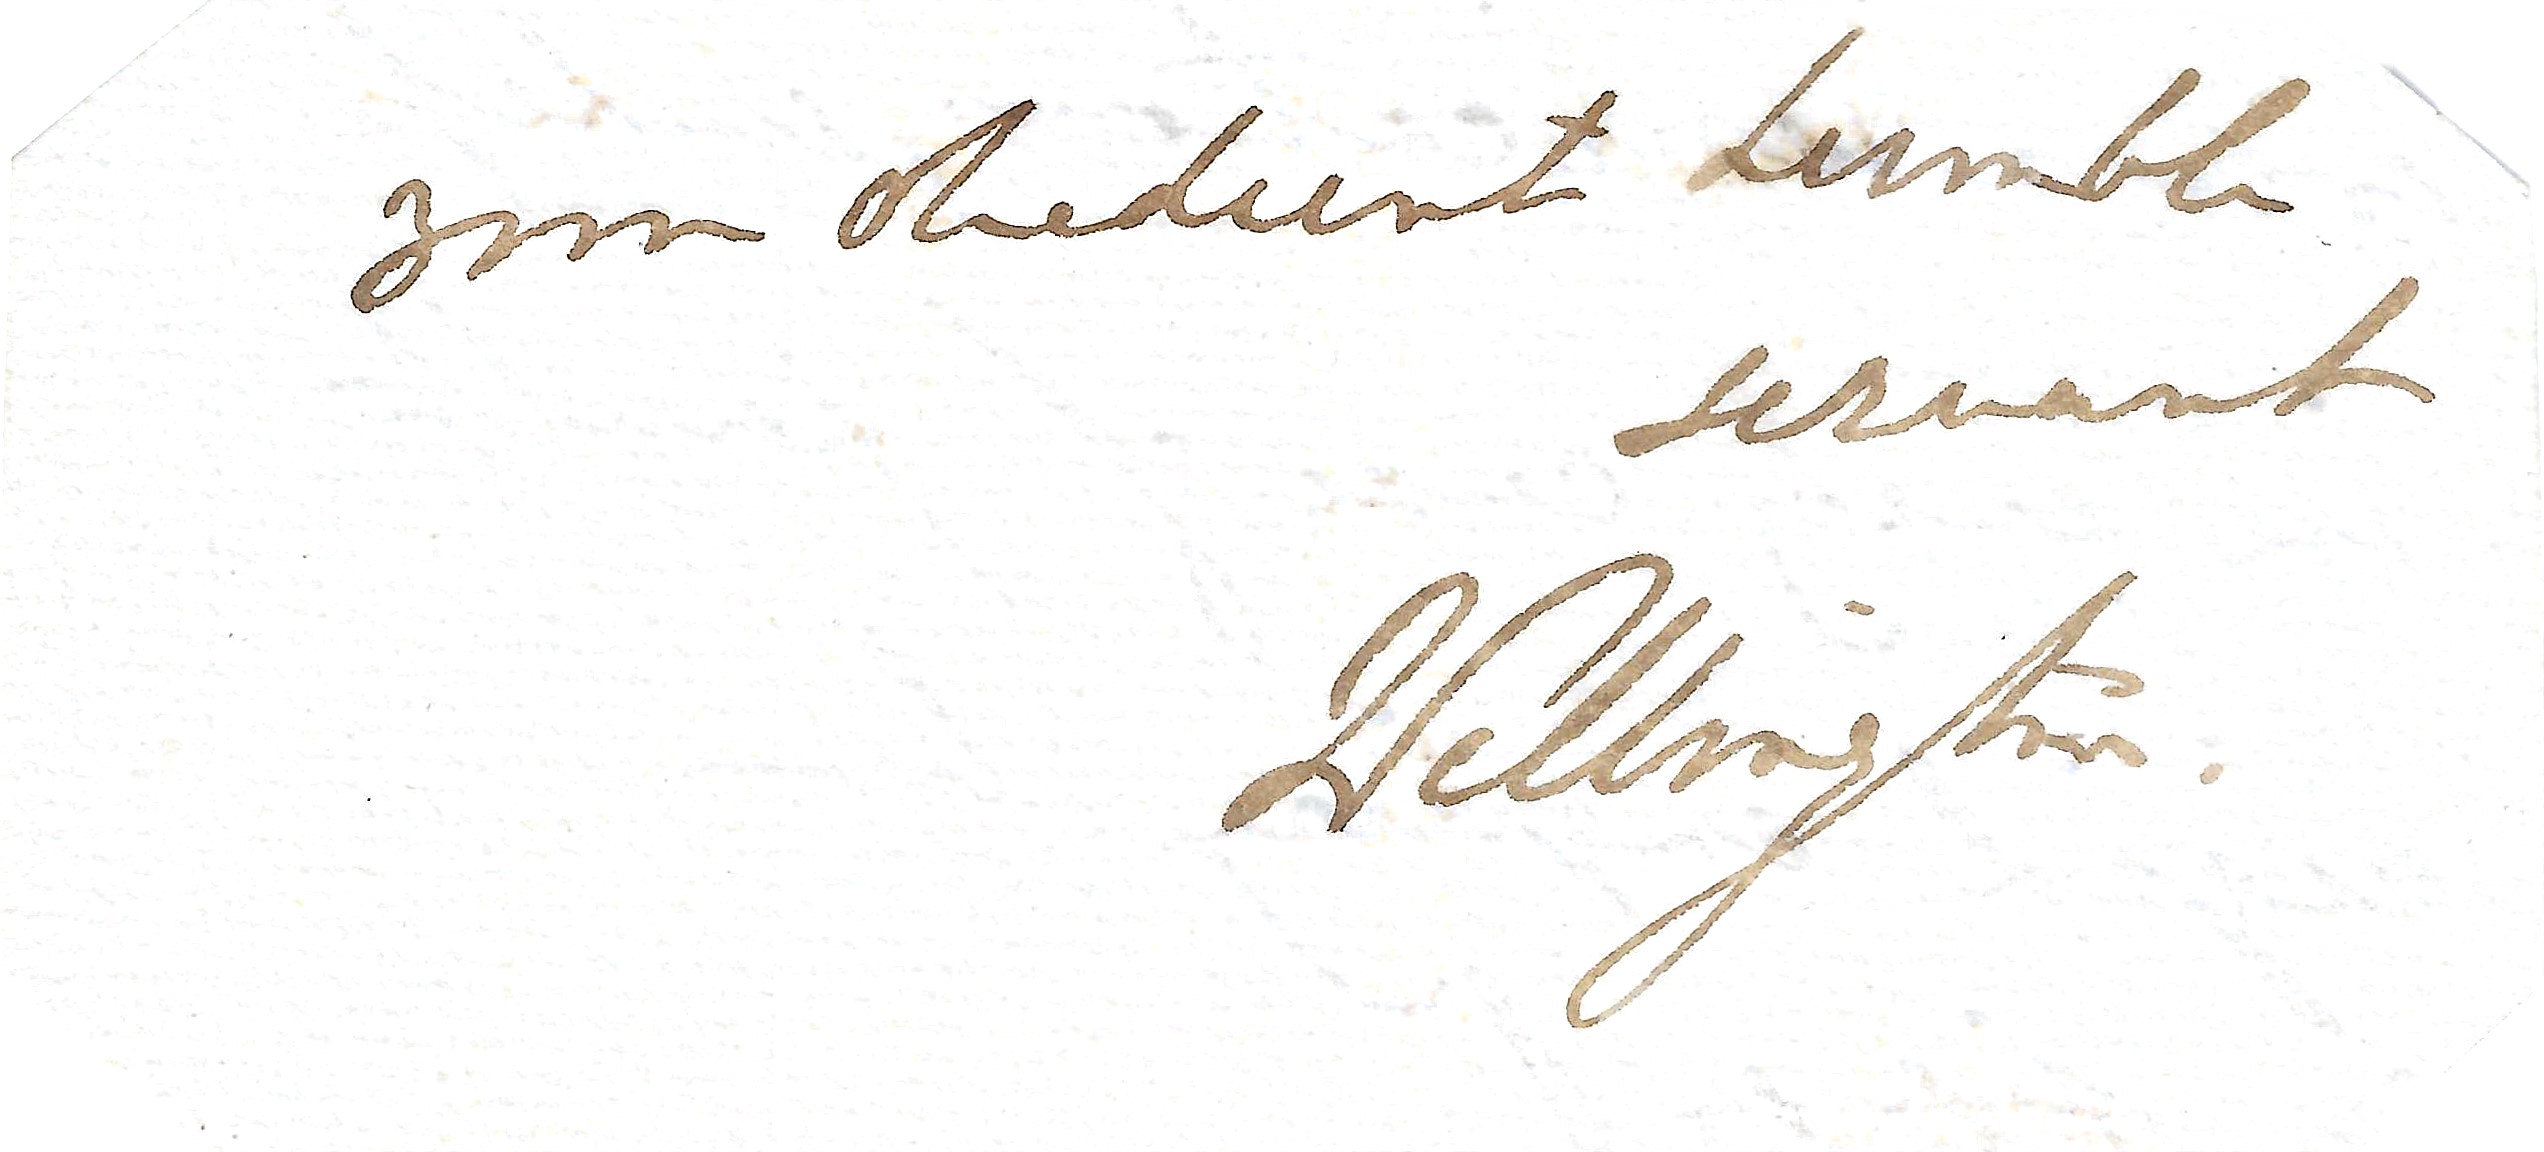 your obedient humble
servant
Wellington.